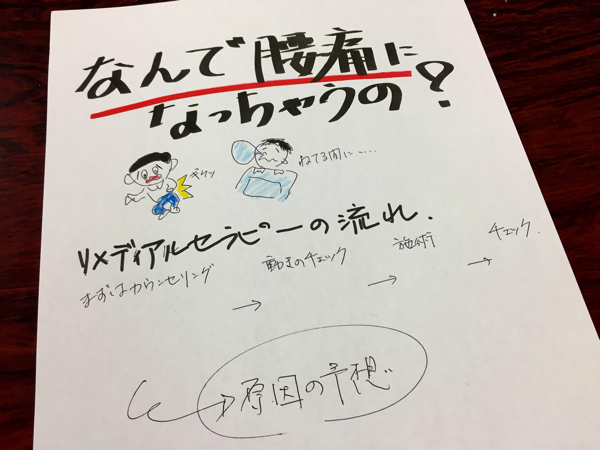 なんで腰痛に
なっちゃうの?
ギクッ
ねてる間に……
リメディアルセラピーの流れ.
まずはカウンセリング → 動きのチェック → 施術 → チェック.
原因の予想